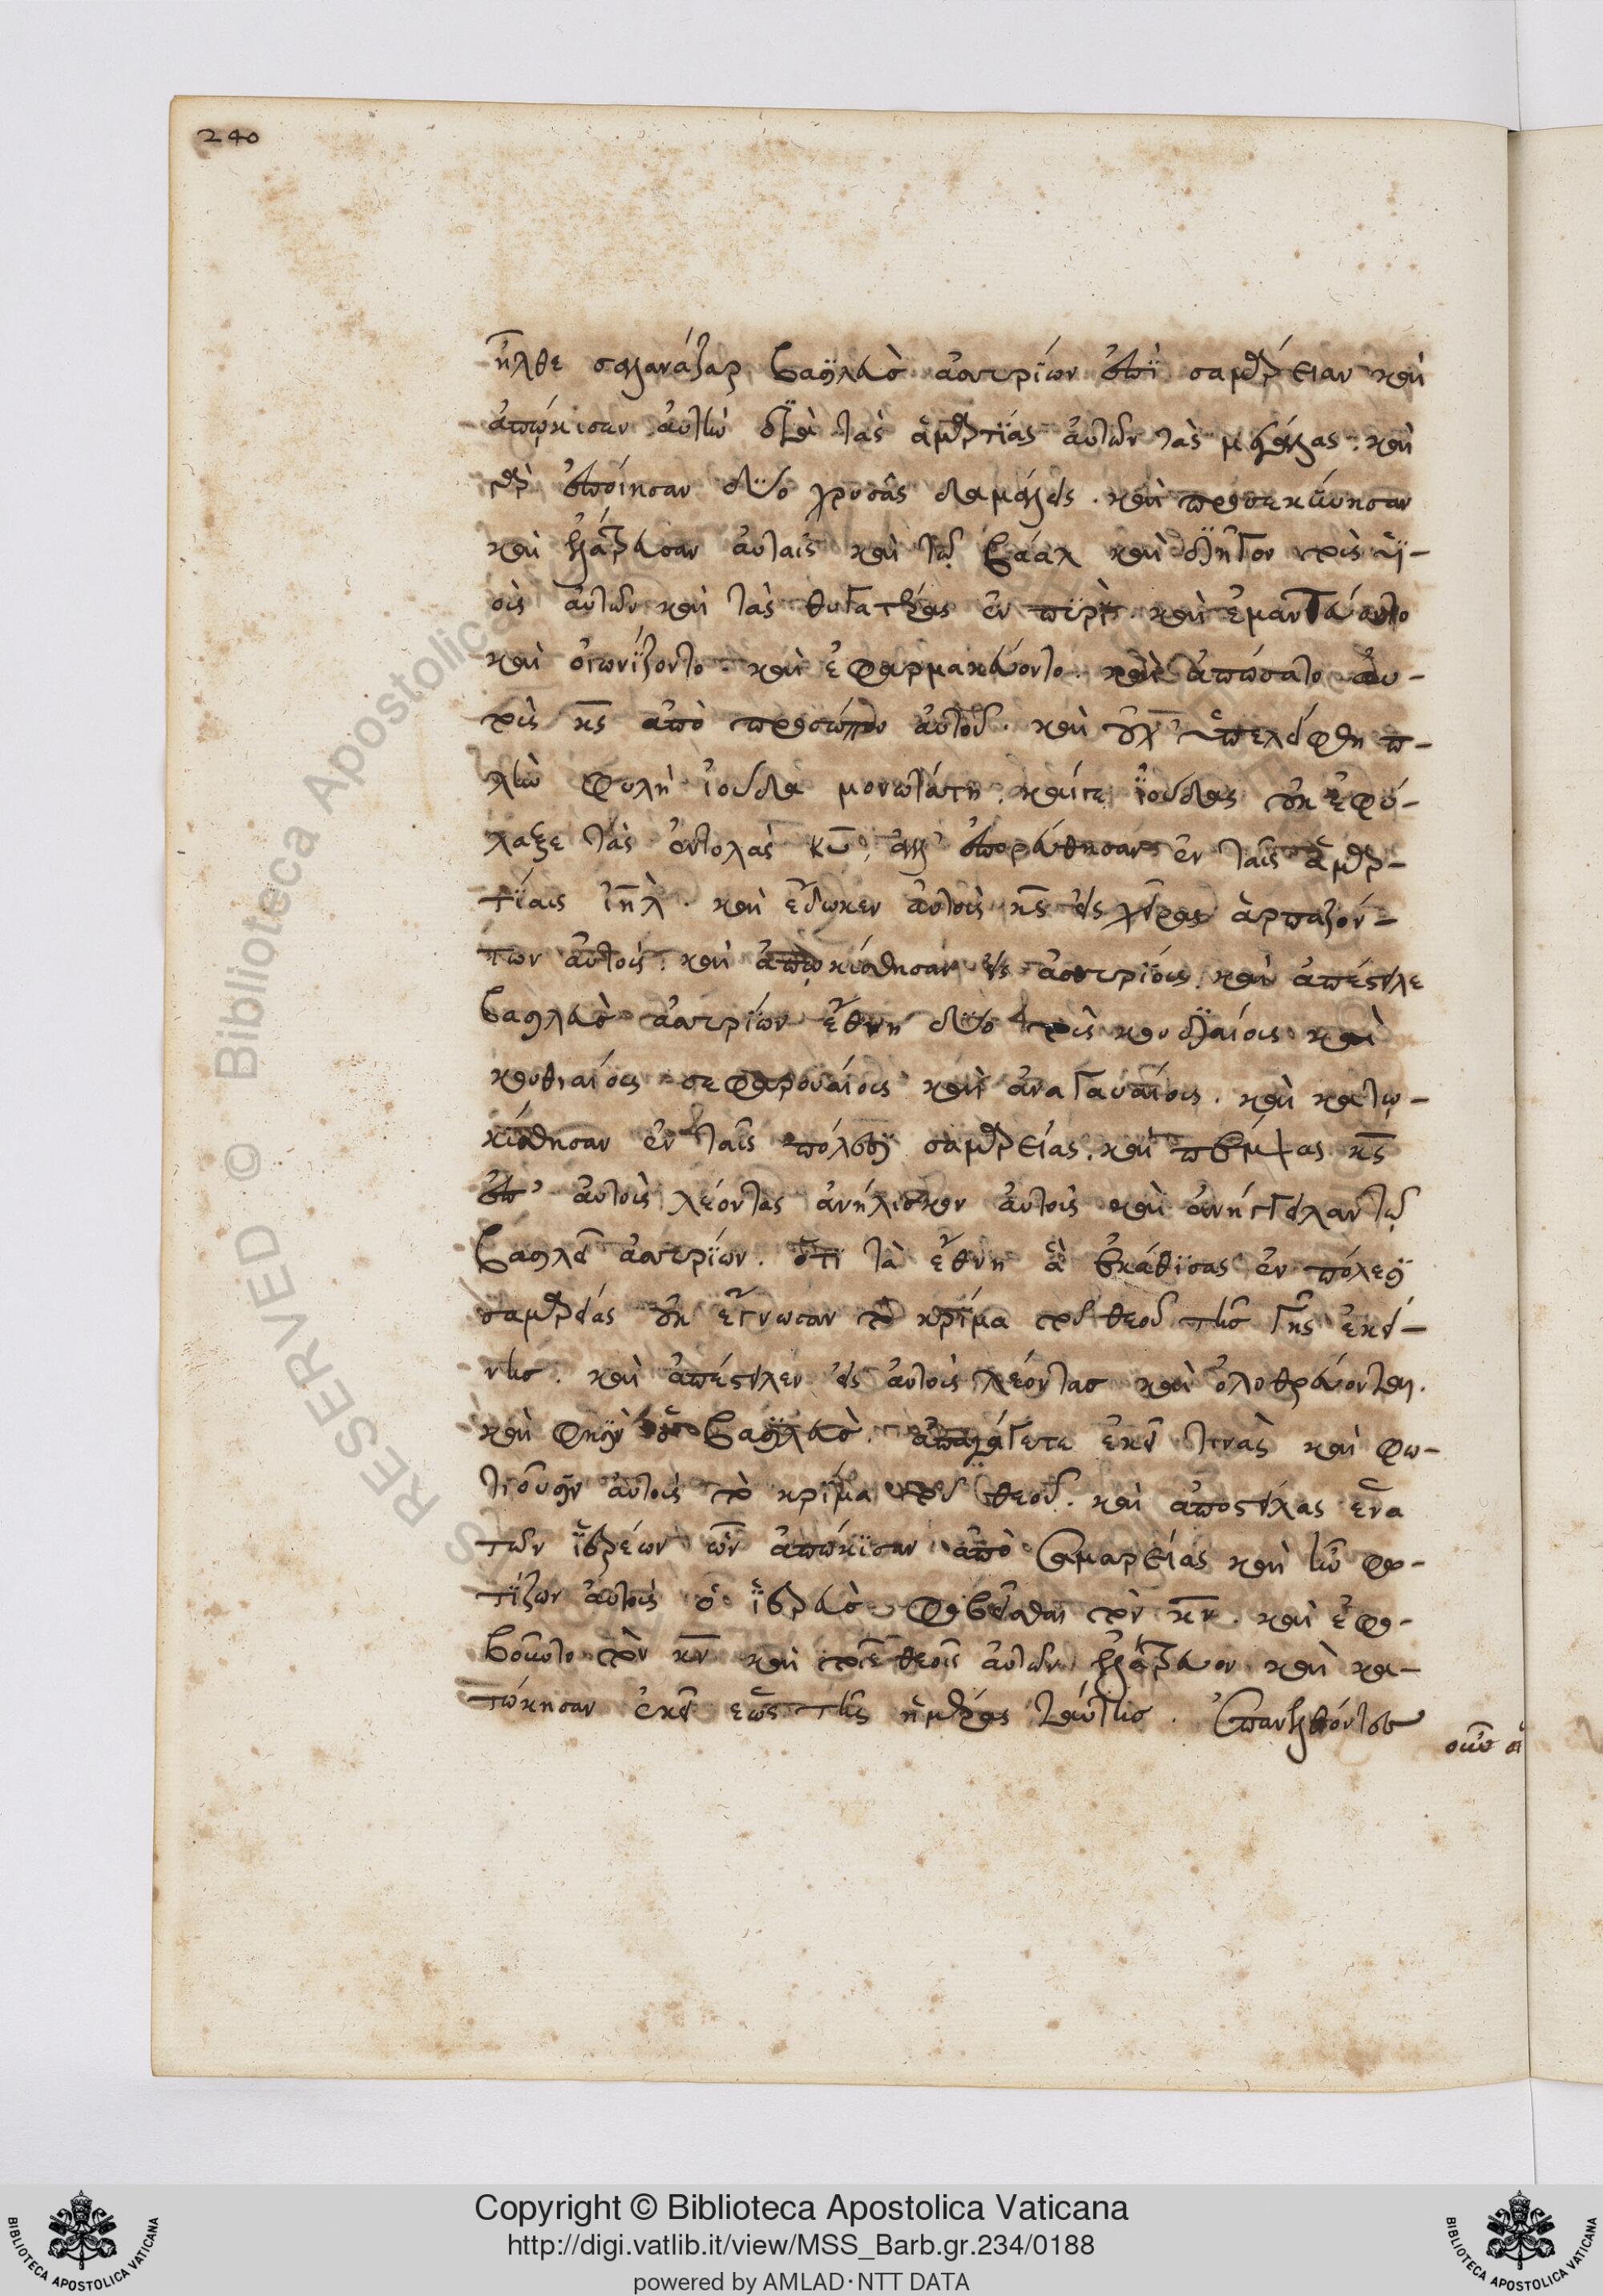 240
ἦλθε σαλμανάσαρ βασιλεὺς ἀσσυρίων ἐπὶ σαμάρειαν καὶ
ἀπώκισεν αὐτὴν διὰ τὰς ἁμαρτίας αὐτῶν τὰς μεγάλας. καὶ
γὰρ ἐποίησαν δύο χρυσᾶς δαμάλεις. καὶ προσεκύνησαν
καὶ ἐλάτρευσαν αὐταῖς καὶ τῷ βάαλ καὶ διῆγον τοὺς υἱ-
οὺς αὐτῶν καὶ τὰς θυγατέρας ἐν πυρὶ. καὶ ἐμαντεύοντο
καὶ οἰωνίζοντο. καὶ ἐφαρμακεύοντο. καὶ ἀπώσατο αὐ-
τοὺς κς ἀπὸ προσώπου αὐτοῦ. καὶ οὐχ ὑπελείφθη π-
λὴν φυλὴ ἰούδα μονωτάτη. καίτε ἰούδας οὐκ ἐφύ-
λαξε τὰς ἐντολὰς κυ, ἀλλ' ἐπορεύθησαν ἐν ταῖς ἁμαρ-
τίαις ιηλ. καὶ ἔδωκεν αὐτοὺς κς εἰς χεῖρας ἁρπαζόν-
των αὐτούς. καὶ ἀπῳκίσθησαν εἰς ἀσσυρίους. καὶ ἀπέστειλε
βασιλεὺς ἀσσυρίων ἔθνη δύο τοὺς καὶ
κουθιαίους σεφαρουαίους καὶ ἀναγαυαίους. καὶ κατῳ-
κίσθησαν ἐν ταῖς πόλεσι σαμαρείας. καὶ πέμψας κς
ἐπ' αὐτοὺς λέοντας ἀνήλισκεν αὐτοὺς καὶ ἀνήγγειλαν τῷ
βασιλεῖ ἀσσυρίων. ὅτι τὰ ἔθνη ἃ ἐκάθισας ἐν πόλεσι
σαμαρείας οὐκ ἔγνωσαν τὸ κρίμα τοῦ θεοῦ τῆς γῆς ἐκεί-
νης. καὶ ἀπέστειλεν εἰς αὐτοὺς λέοντας καὶ ὀλοθρεύονται.
καὶ φησὶν ὁ βασιλεὺς. ἀπαγάγετε ἐκεῖ τινὰς καὶ φω-
τιοῦσιν αὐτοὺς τὸ κρίμα τοῦ θεοῦ. καὶ ἀποστείλας ἕνα
τῶν ἱερέων ὧν ἀπώκισαν ἀπὸ σαμαρείας καὶ ἦν φω-
τίζων αὐτοὺς ὁ ἱερεὺς φοβεῖσθαι τὸν κν. καὶ ἐφο-
βοῦντο τὸν κν καὶ τοῖς θεοῖς αὐτῶν ἐλάτρευον καὶ κα-
τώκησαν ἐκεῖ ἕως τῆς ἡμέρας ταύτης. Ἐπανελθόντος
οὖν
Copyright © Biblioteca Apostolica Vaticana
http://digi.vatlib.it/view/MSS_Barb.gr.234/0188
powered by AMLAD·NTT DATA
BIBLIOTECA APOSTOLICA VATICANA
BIBLIOTECA APOSTOLICA VATICANA